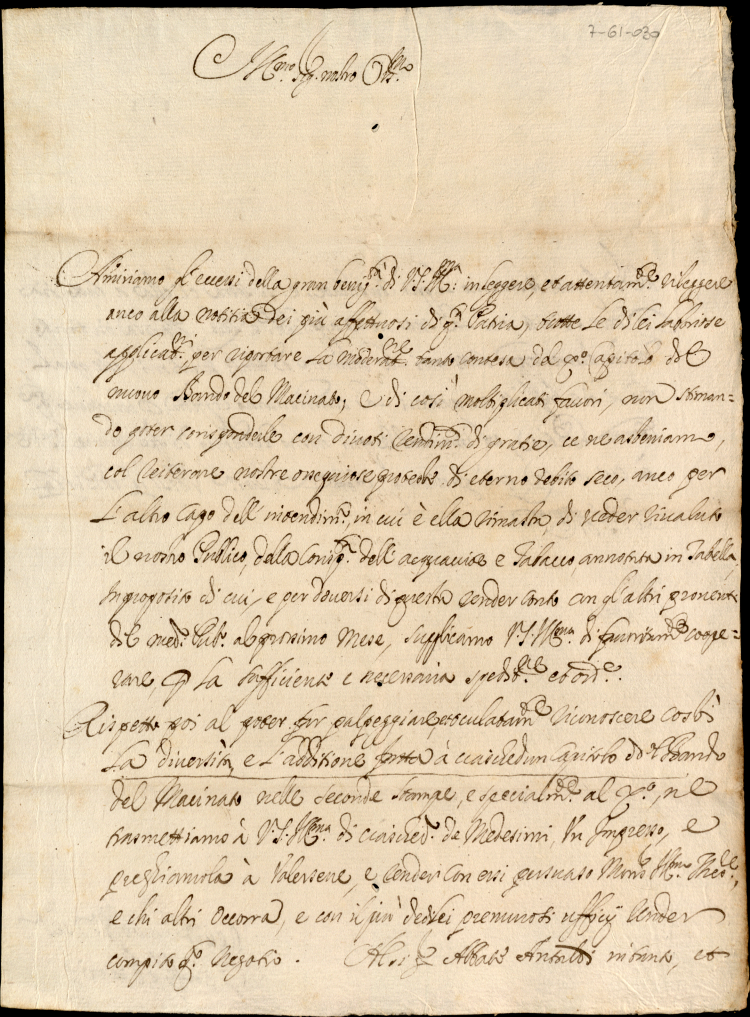 7-61-020
Ill.mo Sig. nostro Oss.mo
Amiriamo gl'eccessi della gran benig.tà di V.S. Ill.ma in leggere, et attentam.te rileggere
anco alla notitia dei già affettuosi di q.sta Patria, tutte le di lei laboriose
applicat.ni per riportare la moderat.ne tanto contesa del p.o Capitolo del
nuovo Bando del Macinato; e di così moltiplicati favori, non stiman=
do poter corrisponderle con divoti sentim.ti di gratie, ce ne asteniamo,
col reiterare nostre ossequiose proteste di eterno debito seco, anco per
l'altro capo dell' in cui è ella rimasta, di veder rivaluto
il nostro Publico, della dell'acquavite e Tabacco, annotata in Tabella,
In proposito di cui, e per doversi di questa render conto con gl'altri proventi
del med.o Pub.o al prossimo Mese, supplicamo V.S. Ill.ma di coope=
rare, p la sufficiente e necessaria spedit.ne et ord.e.
Rispetto poi al poter far palpeggiare, et oculatam.te riconoscere costì
la diversità, e l'additione fatta à ciaschedun Capitolo del Bando
del Macinato nelle seconde stampe, e specialm.te al ne
trasmettiamo à V.S. Ill.ma di ciasched.o de Medesimi, Un Impresso, e
preghiamola à Valersene, e render con essi persuaso Mons.r Ill.mo
e chi altri Occorra, e con il più de di lei premurosi ufficij render
compito q.sto Negotio. Al Sig.r Abbate Antaldi intanto, et